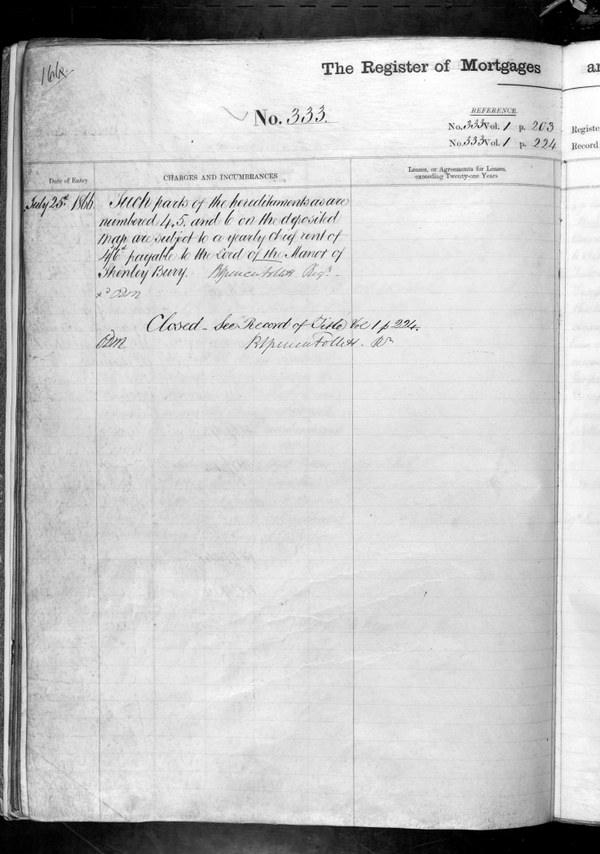 166
The Register of Mortgages
an
No. 333.
REFERENCE.
No. 333 Vol. 1 p. 203
No. 333 Vol. 1 p. 224
Registe
Record
Date of Entry
CHARGES AND INCUMBRANCES
Leases, or Agreements for Leases,
exceeding Twenty-one Years
July 25th 1866
Such parts of the hereditaments as are
numbered 4, 5, and 6 on the deposited
map are subject to a yearly chief rent of
payable to the Lord of the Manor of
Bury. Follett Regr.
Closed - See Record of Title Vol 1 p 224.
Follett